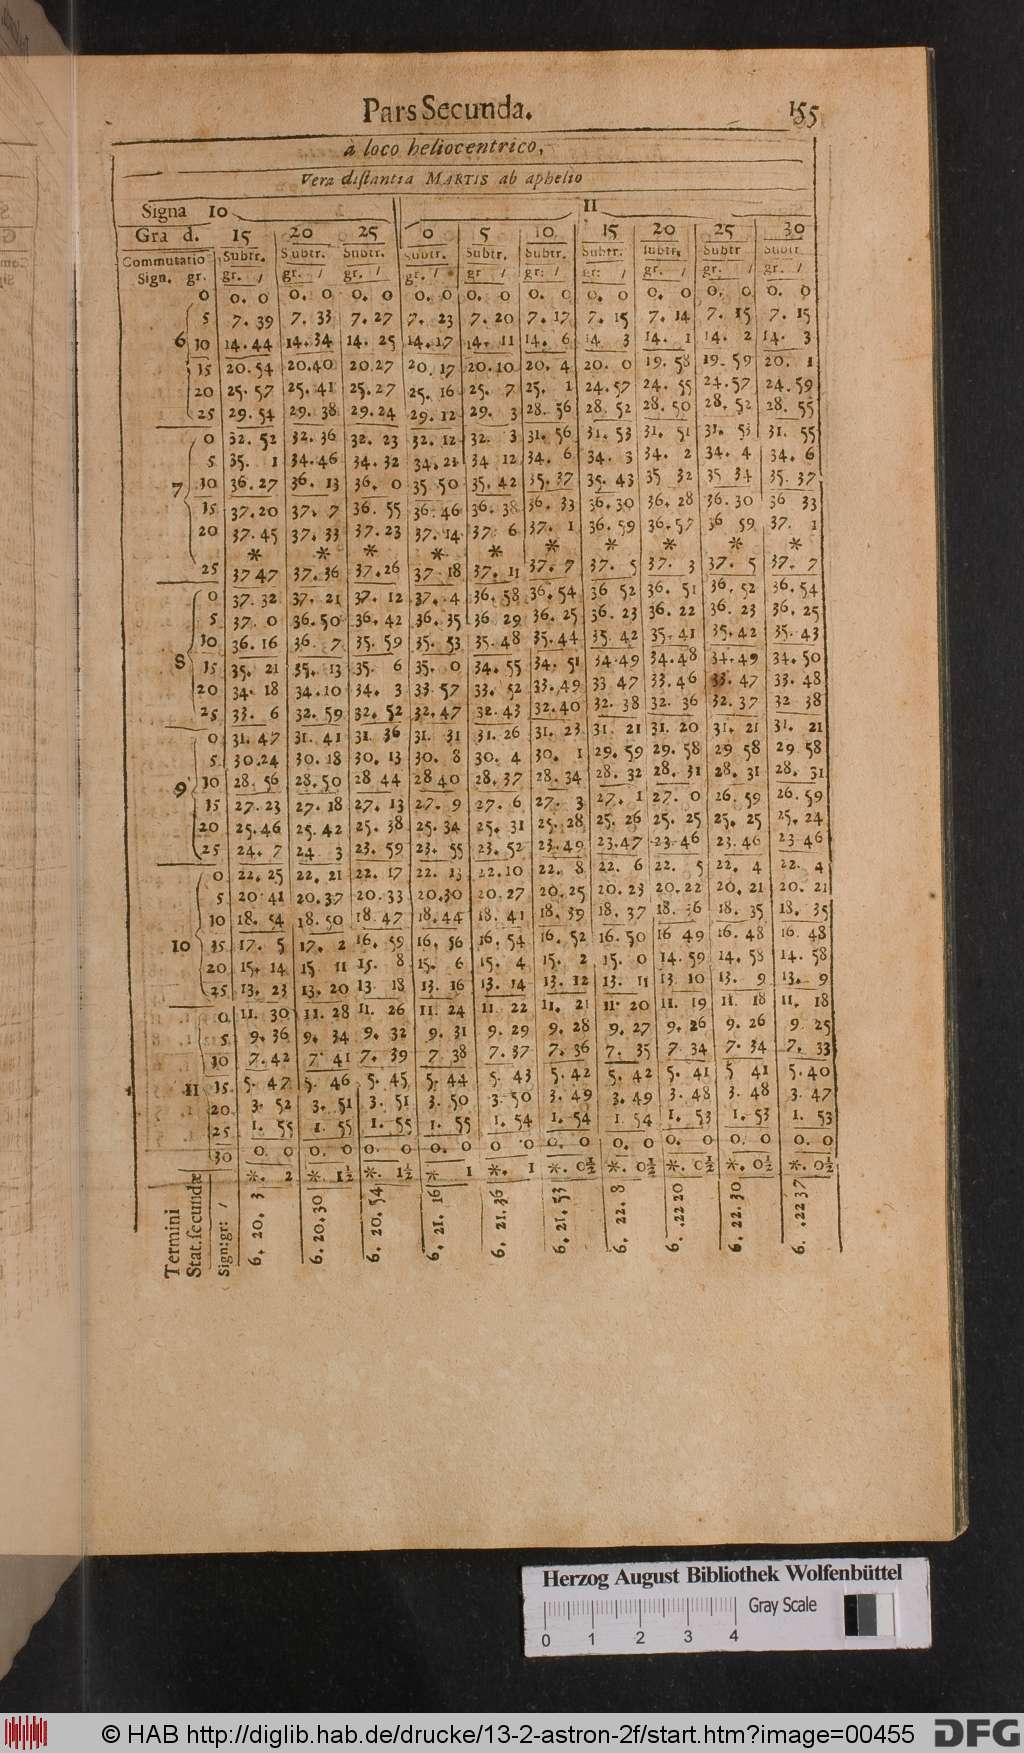 Pars Secunda. 155
à loco heliocentrico,
Vera distantia MARTIS ab aphelio
Signa 10 11
Gra d. 15 20 25 0 5 10 15 20 25 30
Commutatio Subtr. Subtr. Subtr. Subtr. Subtr. Subtr. Subtr. Subtr. Subtr Subtr
Sign. gr. gr. / gr. / gr. / gr. / gr / gr: / gr: / gr. / gr. / gr. /
0 0. 0 0. 0 0. 0 0. 0 0. 0 0. 0 0. 0 0. 0 0. 0 0. 0
5 7. 39 7. 33 7. 27 7. 23 7. 20 7. 17 7. 15 7. 14 7. 15 7. 15
6 10 14. 44 14. 34 14. 25 14. 17 14. 11 14. 6 14 3 14. 1 14. 2 14. 3
15 20. 54 20. 40 20. 27 20. 17 20. 10 20. 4 20. 0 19. 58 19. 59 20. 1
20 25. 57 25. 41 25. 27 25. 16 25. 7 25. 1 24. 57 24. 55 24. 57 24. 59
25 29. 54 29. 38 29. 24 29. 12 29. 3 28. 56 28. 52 28. 50 28. 52 28. 55
0 32. 52 32. 36 32. 23 32. 12 32. 3 31. 56 31. 53 31. 51 31. 53 31. 55
5 35. 1 34. 46 34. 32 34. 21 34 12 34. 6 34. 3 34. 2 34. 4 34. 6
7 10 36. 27 36. 13 36. 0 35 50 35. 42 35. 37 35. 43 35 32 35 34 35. 37
15 37. 20 37. 7 36. 55 36. 46 36. 38 36. 33 36. 30 36. 28 36. 30 36 33
20 37. 45 37. 33 37. 23 37. 14 37 6 37. 1 36. 59 36. 57 36 59 37. 1
* * * * * * * * * *
25 37 47 37. 36 37. 26 37 18 37. 11 37. 7 37. 5 37. 3 37. 5 37. 7
0 37. 32 37. 21 37. 12 37. 4 36. 58 36. 54 36 52 36. 51 36. 52 36. 54
5 37. 0 36. 50 36. 42 36. 35 36 29 36. 25 36. 23 36. 22 36. 23 36. 25
10 36. 16 36. 7 35. 59 35. 53 35. 48 35. 44 35. 42 35. 41 35. 42 35. 43
8 15 35. 21 35. 13 35. 6 35. 0 34. 55 34. 51 34. 49 34. 48 34. 49 34. 50
20 34. 18 34. 10 34. 3 33. 57 33. 52 33. 49 33 47 33. 46 33. 47 33. 48
25 33. 6 32. 59 32. 52 32. 47 32. 43 32. 40 32. 38 32. 36 32. 37 32 38
0 31. 47 31. 41 31. 36 31. 31 31. 26 31. 23 31. 21 31. 20 31. 21 31. 21
5 30. 24 30. 18 30. 13 30. 8 30. 4 30. 1 29. 59 29. 58 29 58 29 58
9 10 28. 56 28. 50 28 44 28 40 28. 37 28. 34 28. 32 28. 31 28. 31 28. 31
15 27. 23 27. 18 27. 13 27. 9 27. 6 27. 3 27. 1 27. 0 26. 59 26. 59
20 25. 46 25. 42 25. 38 25. 34 25. 31 25. 28 25. 26 25. 25 25. 25 25. 24
25 24. 7 24 3 23. 59 23. 55 23. 52 23. 49 23. 47 23. 46 23. 46 23 46
0 22. 25 22. 21 22. 17 22. 13 22. 10 22. 8 22. 6 22. 5 22. 4 22. 4
5 20 41 20. 37 20. 33 20. 30 20. 27 20. 25 20. 23 20. 22 20. 21 20. 21
10 18. 54 18. 50 18. 47 18. 44 18. 41 18. 39 18. 37 18. 36 18. 35 18. 35
10 15 17. 5 17. 2 16. 59 16. 56 16. 54 16. 52 16. 50 16 49 16. 48 16. 48
20 15. 14 15 11 15. 8 15. 6 15. 4 15. 2 15. 0 14. 59 14. 58 14. 58
25 13. 23 13. 20 13 18 13. 16 13. 14 13. 12 13. 11 13 10 13. 9 13. 9
0 11. 30 11. 28 11. 26 11. 24 11 22 11. 21 11. 20 11. 19 11. 18 11. 18
5 9. 36 9. 34 9. 32 9. 31 9. 29 9. 28 9. 27 9. 26 9. 26 9 25
10 7. 42 7. 41 7. 39 7 38 7. 37 7. 36 7. 35 7 34 7. 34 7. 33
11 15 5. 47 5. 46 5. 45 5. 44 5. 43 5. 42 5. 42 5. 41 5 41 5. 40
20 3. 52 3. 51 3. 51 3. 50 3. 50 3. 49 3. 49 3. 48 3. 48 3. 47
25 1. 55 1. 55 1. 55 1. 55 1. 54 1. 54 1. 54 1. 53 1. 53 1. 53
30 0. 0 0. 0 0. 0 0. 0 0 0 0. 0 0. 0 0. 0 0. 0 0. 0
*. 2 *. 1½ *. 1½ * 1 *. 1 *. 0½ *. 0½ *. 0½ *. 0½ *. 0½
Termini
Stat. secundæ
Sign: gr: /
6. 20. 3
6. 20. 30
6. 20. 54
6. 21. 16
6. 21. 36
6. 21. 53
6. 22. 8
6. 22 20
6. 22. 30
6. 22 37
Herzog August Bibliothek Wolfenbüttel
Gray Scale
0 1 2 3 4
© HAB http://diglib.hab.de/drucke/13-2-astron-2f/start.htm?image=00455 DFG